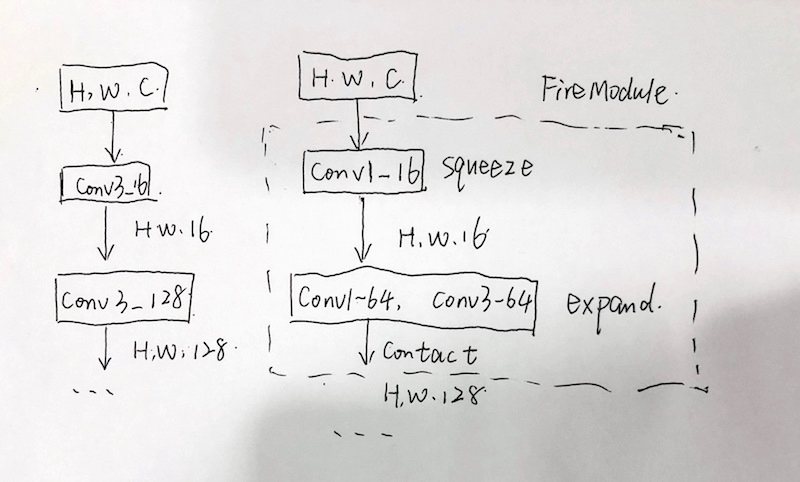 H, W, C.
Conv3_16
H W.16
Conv3_128
H.W.128.
...
H. W. C.
FireModule.
Conv1_16
squeeze
H.W.16
Conv1-64, Conv3-64
expand.
Contact
H.W.128
...